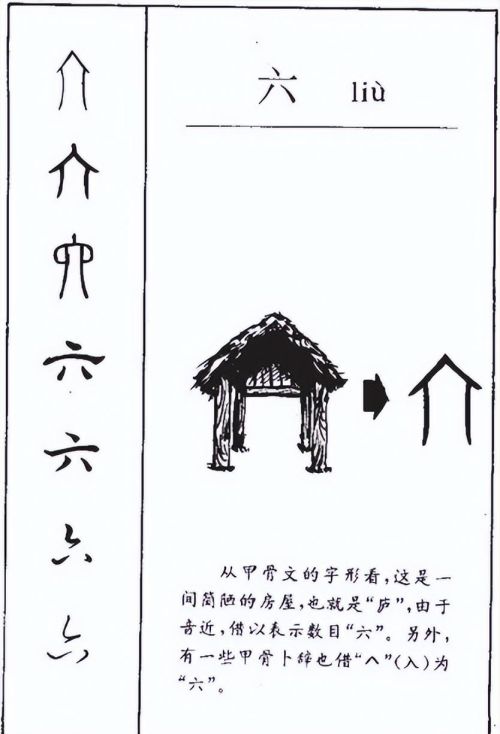 六 liù
六
六
六
六
从甲骨文的字形看，这是一
间简陋的房屋，也就是“庐”，由于
音近，借以表示数目“六”。另外，
有一些甲骨卜辞也借“ヘ”(入)为
“六”。